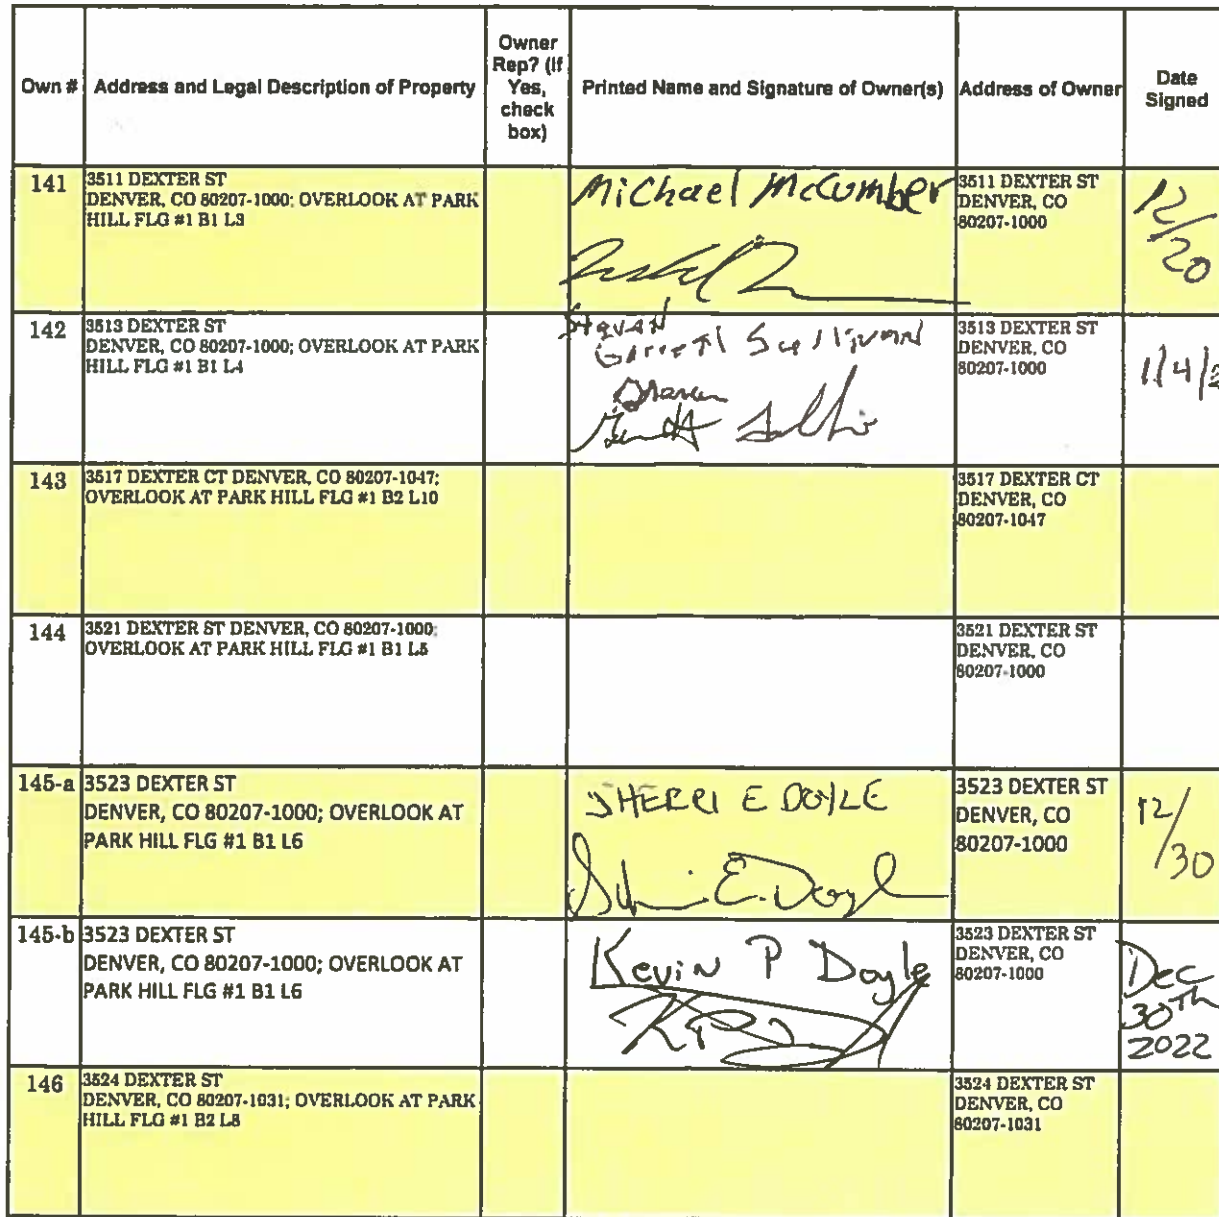 Own #
Address and Legal Description of Property
Owner
Rep? (If
Yes,
check
box)
Printed Name and Signature of Owner(s)
Address of Owner
Date
Signed
141
3511 DEXTER ST
DENVER, CO 80207-1000; OVERLOOK AT PARK
HILL FLG #1 B1 L3
Michael McCumber
3511 DEXTER ST
DENVER, CO
80207-1000
12/
20
142
3513 DEXTER ST
DENVER, CO 80207-1000; OVERLOOK AT PARK
HILL FLG #1 B1 L4
Garrett Sullivan
3513 DEXTER ST
DENVER, CO
80207-1000
1/4/2
143
3517 DEXTER CT DENVER, CO 80207-1047;
OVERLOOK AT PARK HILL FLG #1 B2 L10
3517 DEXTER CT
DENVER, CO
80207-1047
144
3521 DEXTER ST DENVER, CO 80207-1000;
OVERLOOK AT PARK HILL FLG #1 B1 L5
3521 DEXTER ST
DENVER, CO
80207-1000
145-a
3523 DEXTER ST
DENVER, CO 80207-1000; OVERLOOK AT
PARK HILL FLG #1 B1 L6
SHERRI E DOYLE
Sherri E. Doyle
3523 DEXTER ST
DENVER, CO
80207-1000
12/
30
145-b
3523 DEXTER ST
DENVER, CO 80207-1000; OVERLOOK AT
PARK HILL FLG #1 B1 L6
Kevin P Doyle
3523 DEXTER ST
DENVER, CO
80207-1000
Dec
30Th
2022
146
3524 DEXTER ST
DENVER, CO 80207-1031; OVERLOOK AT PARK
HILL FLG #1 B2 L8
3524 DEXTER ST
DENVER, CO
80207-1031